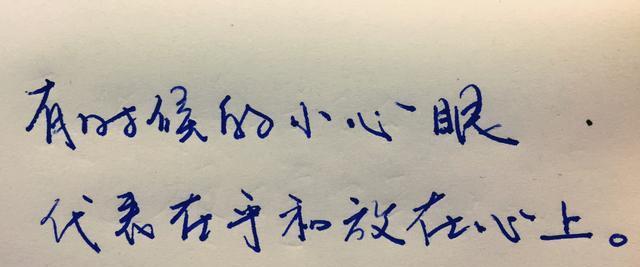 有时候的小心眼.
代表在乎和放在心上。